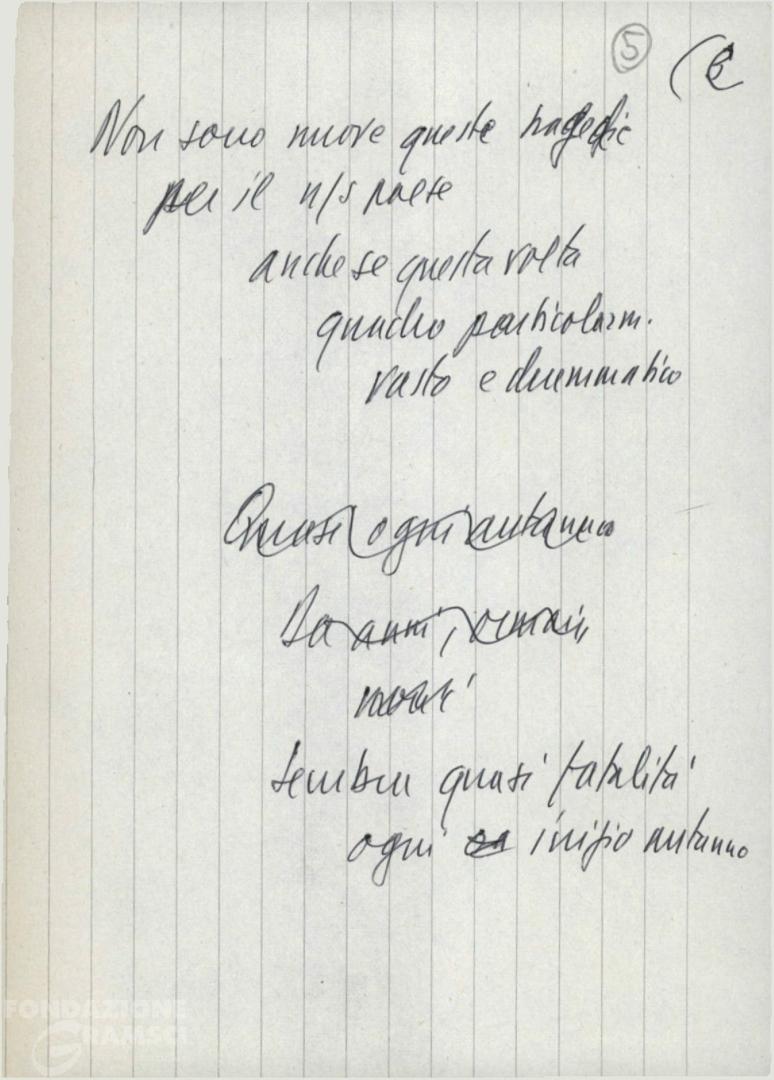 5
Non sono nuove queste tragedie
per il n/s paese
anche se questa volta
quadro particolarm.
vasto e drammatico
Quasi ogni autunno
Da anni, ormai,
sembra quasi fatalità
ogni inizio autunno
FONDAZIONE
GRAMSCI